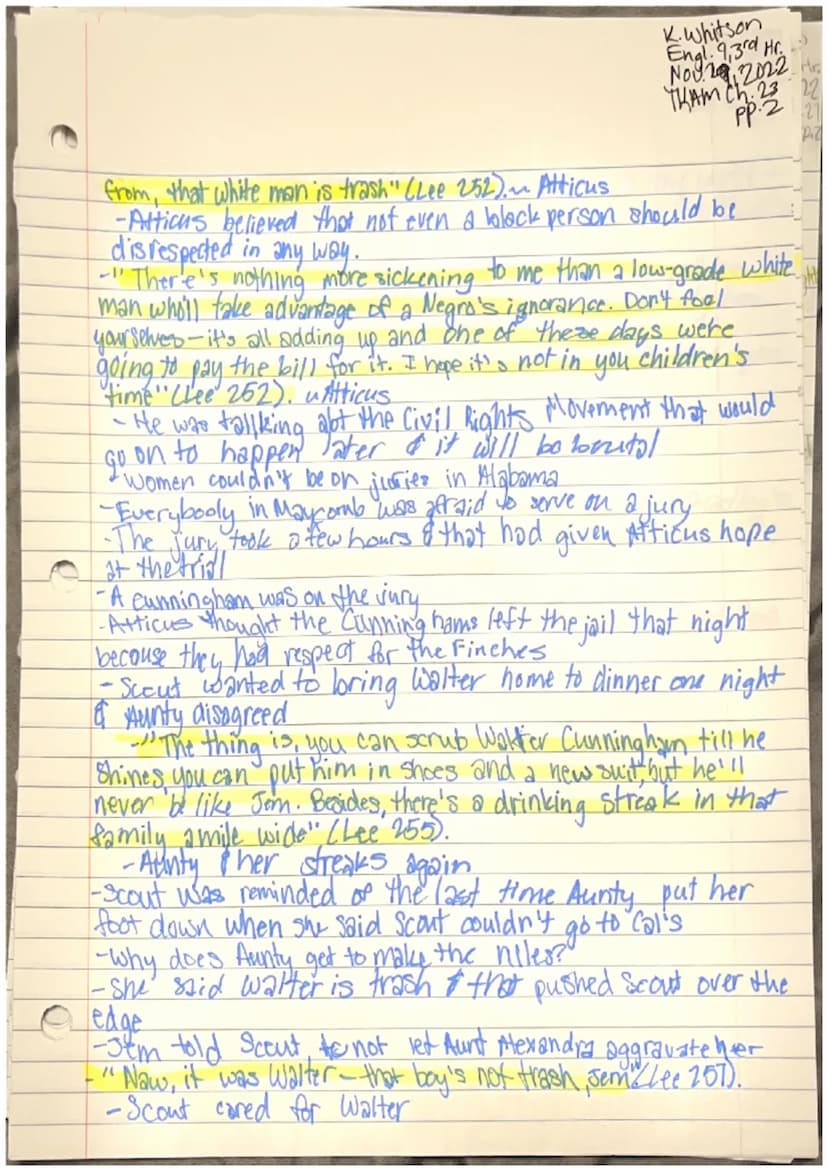 K. Whitson
Engl. 9, 3rd Hr.
Nov. 29, 2022
TKAM Ch. 23
pp. 2
from, that white man is trash" (Lee 252). ~ Atticus
-Atticus believed that not even a black person should be
disrespected in any way.
-"There's nothing more sickening to me than a low-grade white
man who'll take advantage of a Negro's ignorance. Don't fool
yourselves-it's all adding up and one of these days were
going to pay the bill for it. I hope it's not in you children's
time" (Lee 252). ~ Atticus
- He was tallking abt the Civil Rights Movement that would
go on to happen later & it will be brutal
- Women couldn't be on juries in Alabama
-Everybody in Maycomb was afraid to serve on a jury
-The jury took a few hours & that had given Atticus hope
at the trial
-A Cunningham was on the jury
-Atticus thought the Cunninghams left the jail that night
because they had respect for the Finches
- Scout wanted to bring Walter home to dinner one night
& Aunty disagreed
-"The thing is, you can scrub Walter Cunningham till he
shines, you can put him in shoes and a new suit, but he'll
never be like Jem. Besides, there's a drinking streak in that
family a mile wide" (Lee 255).
-Aunty & her streaks again
-Scout was reminded of the last time Aunty put her
foot down when she said Scout couldn't go to Cal's
-Why does Aunty get to make the rules?
- She said Walter is trash & that pushed Scout over the
edge
-Jem told Scout to not let Aunt Alexandra aggravate her
-"Naw, it was Walter-that boy's not trash, Jem" (Lee 257).
-Scout cared for Walter